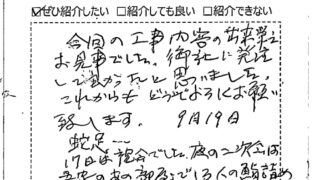 ☑ぜひ紹介したい ☐紹介しても良い ☐紹介できない
今回の工事内容の出来栄え
お見事でした。御社に発注
して良かったと思いました。
これからもどうぞよろしくお願い
致します。 9月19日
蛇足…
17日は総会でした。夜の二次会は
の部屋で13人の